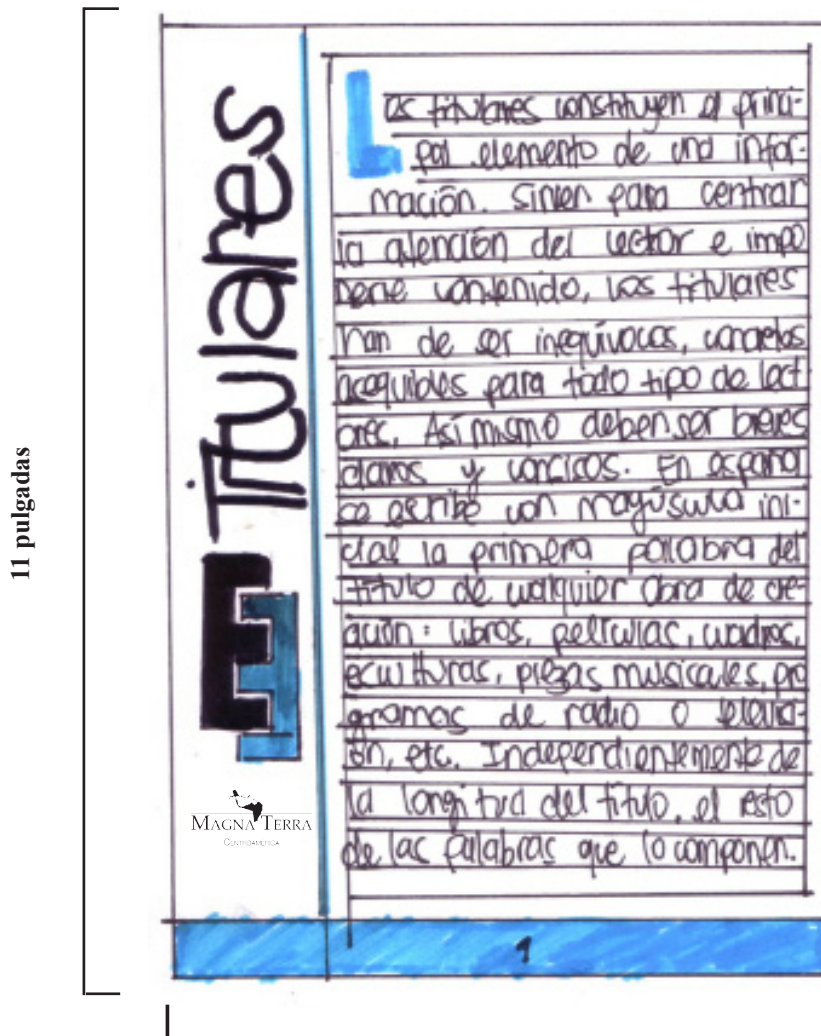 11 pulgadas
Titulares
E
MAGNA TERRA
CENTROAMERICA
Los titulares constituyen el princi-
pal elemento de una infor-
mación. Sirven para centrar
la atención del lector e impo
nerle contenido, los titulares
han de ser inequívocos, concretos
acequibles para todo tipo de lect
ores. Así mismo deben ser breves
claros y concisos. En español
se escribe con mayúscula ini-
cial la primera palabra del
título de cualquier obra de cre-
ación: libros, películas, cuadros,
eculturas, piezas musicales, pro
gramas de radio o televisi-
ón, etc. Independientemente de
la longitud del título, el resto
de las palabras que lo componen.
1